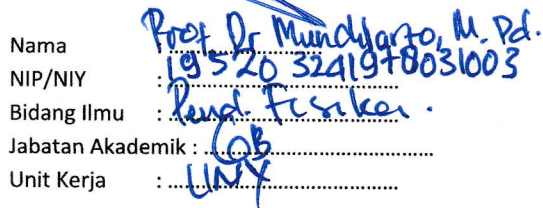 Nama Prof Dr Mundilarto, M.Pd.
NIP/NIY : 195203241978031003
Bidang Ilmu : Pend. Fisika.
Jabatan Akademik : GB
Unit Kerja : UNY